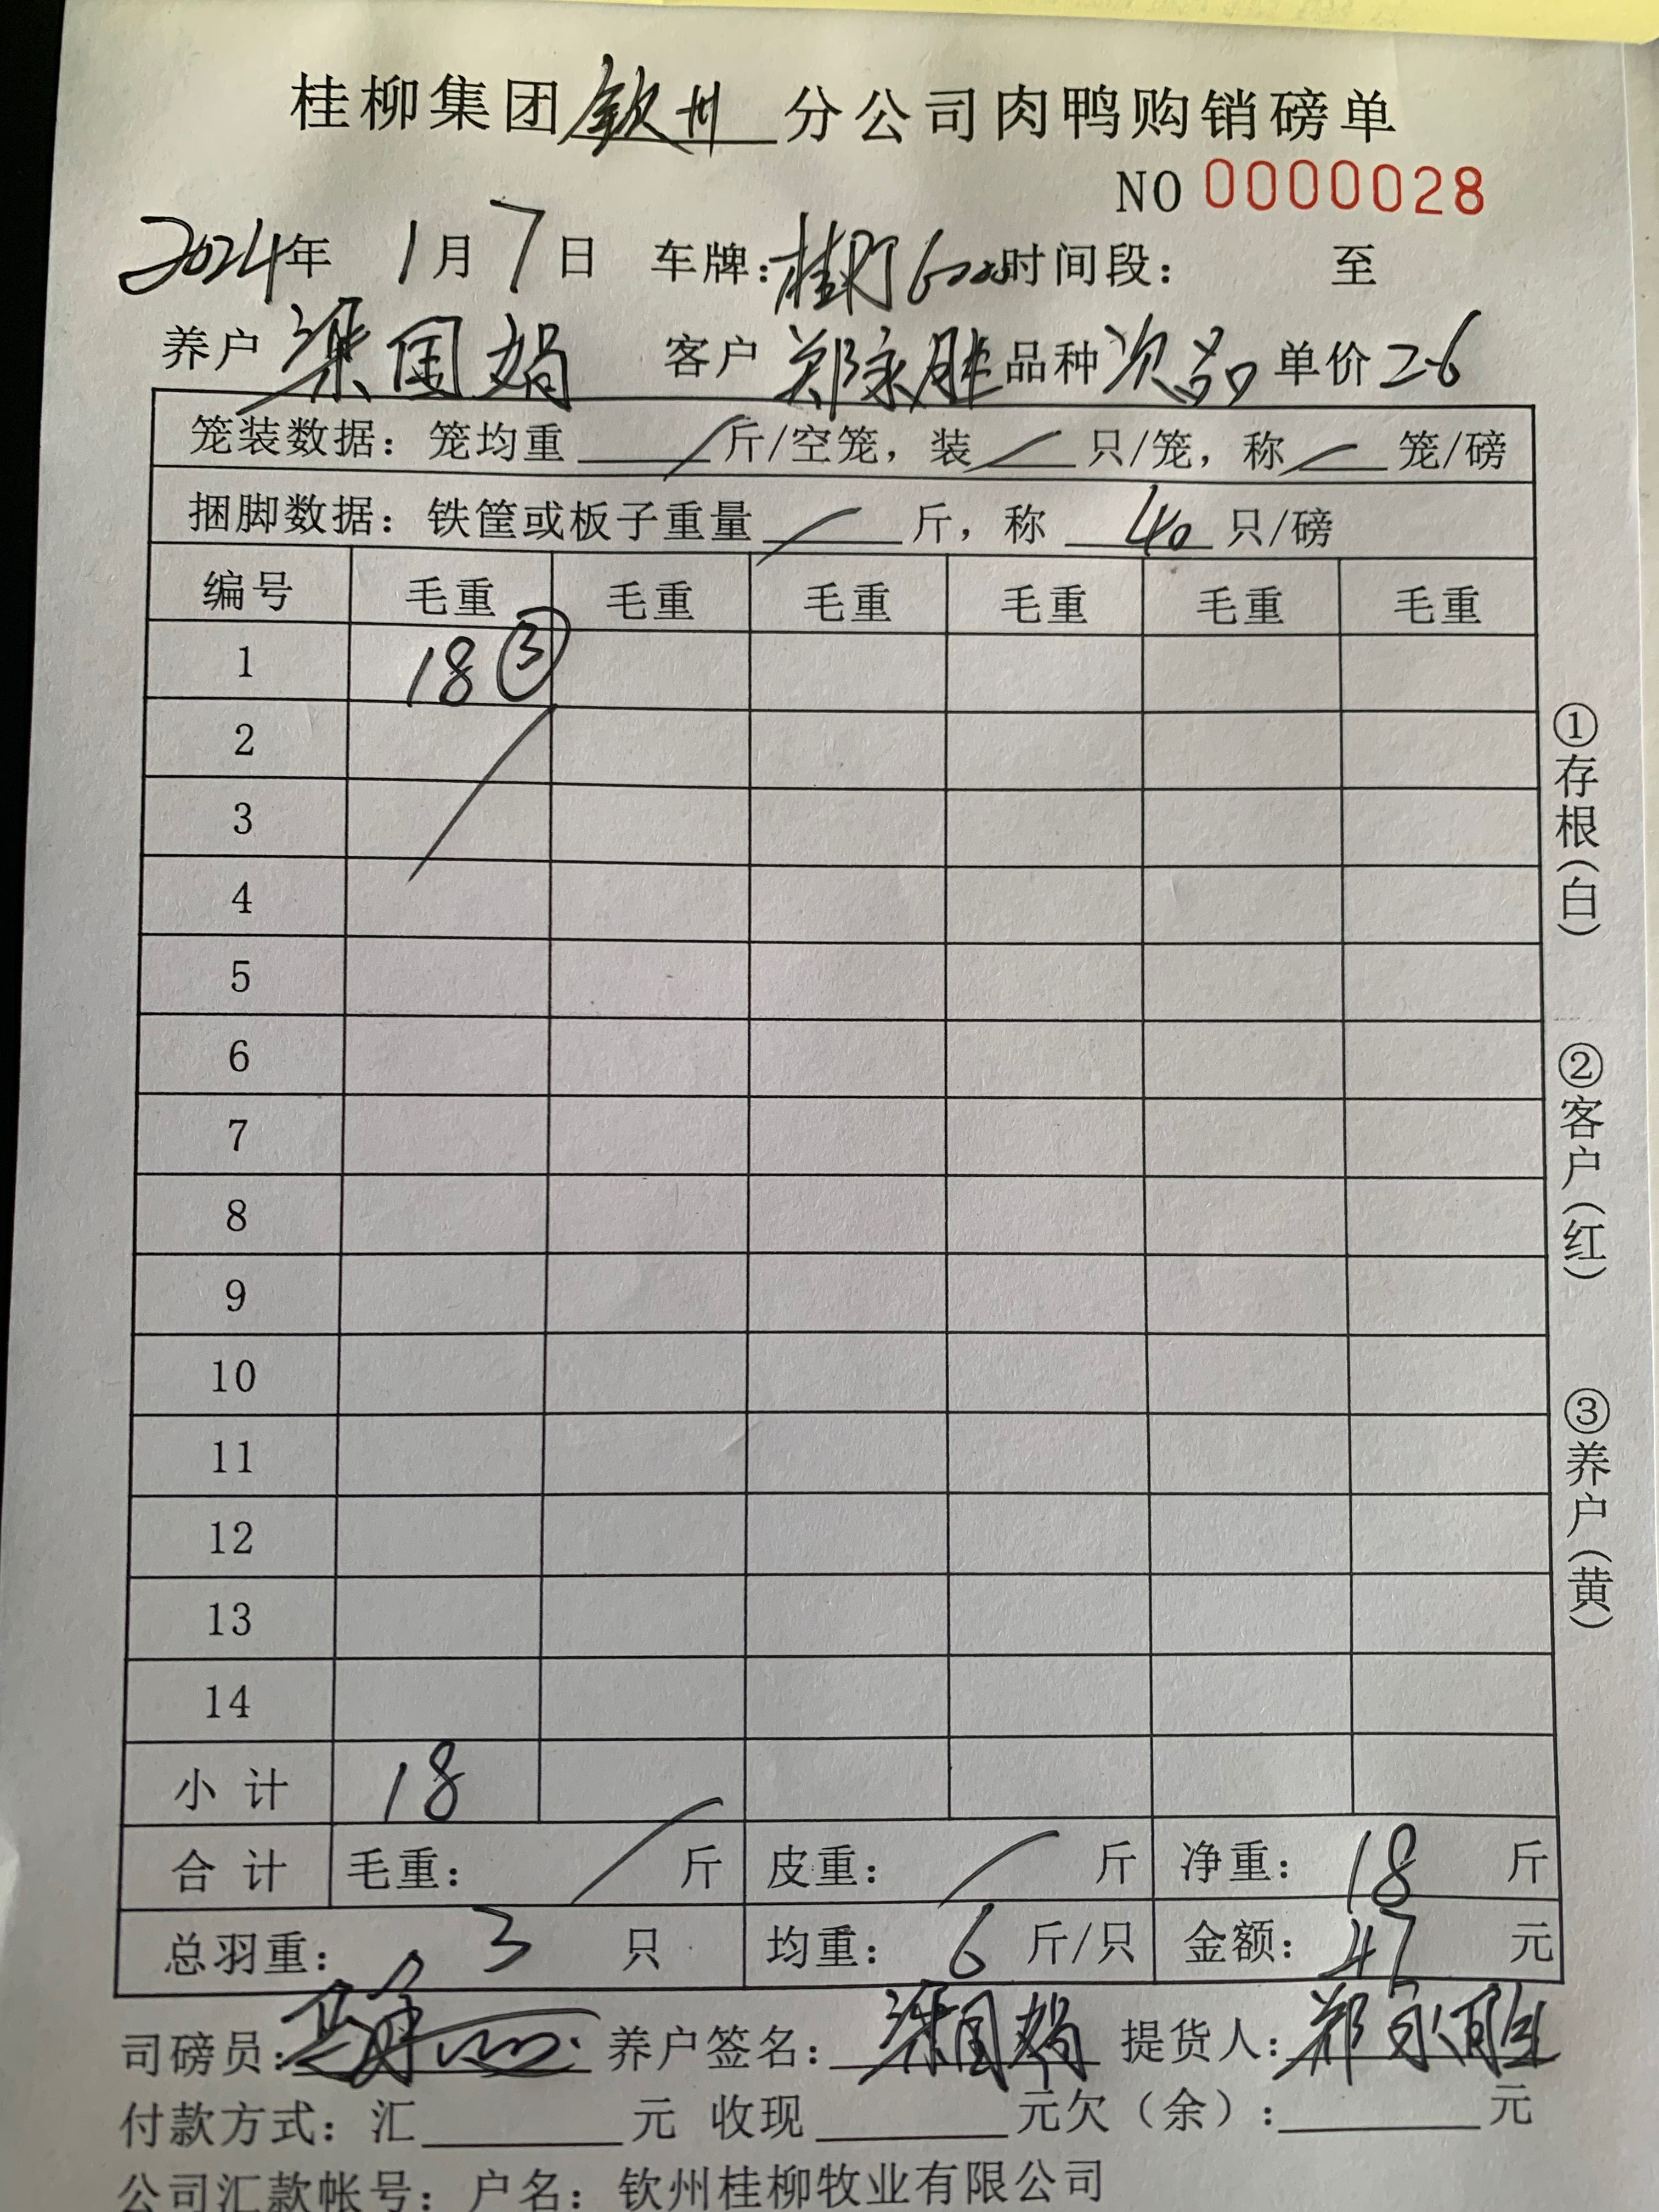 桂柳集团钦州分公司肉鸭购销磅单
NO 0000028
2024年 1月7日 车牌: 时间段: 至
养户 梁国娟 客户 郑永胜 品种 次品 单价 2.6
笼装数据: 笼均重 / 斤/空笼, 装 / 只/笼, 称 / 笼/磅
捆脚数据: 铁筐或板子重量 / 斤, 称 40 只/磅
编号 毛重 毛重 毛重 毛重 毛重 毛重
1 18 ③
2
3
4
5
6
7
8
9
10
11
12
13
14
小计 18
合计 毛重: / 斤 皮重: / 斤 净重: 18 斤
总羽重: 3 只 均重: 6 斤/只 金额: 47 元
司磅员: 养户签名: 梁国娟 提货人: 郑永胜
付款方式: 汇 元 收现 元欠(余): 元
公司汇款帐号: 户名: 钦州桂柳牧业有限公司
①存根(白)
②客户(红)
③养户(黄)